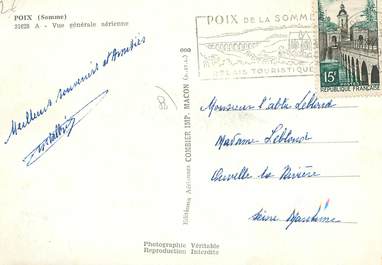 POIX (Somme)
31628 A - Vue générale aérienne
POIX DE LA SOMME
RELAIS TOURISTIQUE
15F
RÉPUBLIQUE FRANÇAISE
Meilleurs souvenirs et Amitiés
Éditions Aériennes COMBIER IMP. MACON (S.-et-L.)
Monsieur l'abbé Leblond
Madame Leblond
Neuville les Rivière
Seine Maritime
Photographie Véritable
Reproduction Interdite